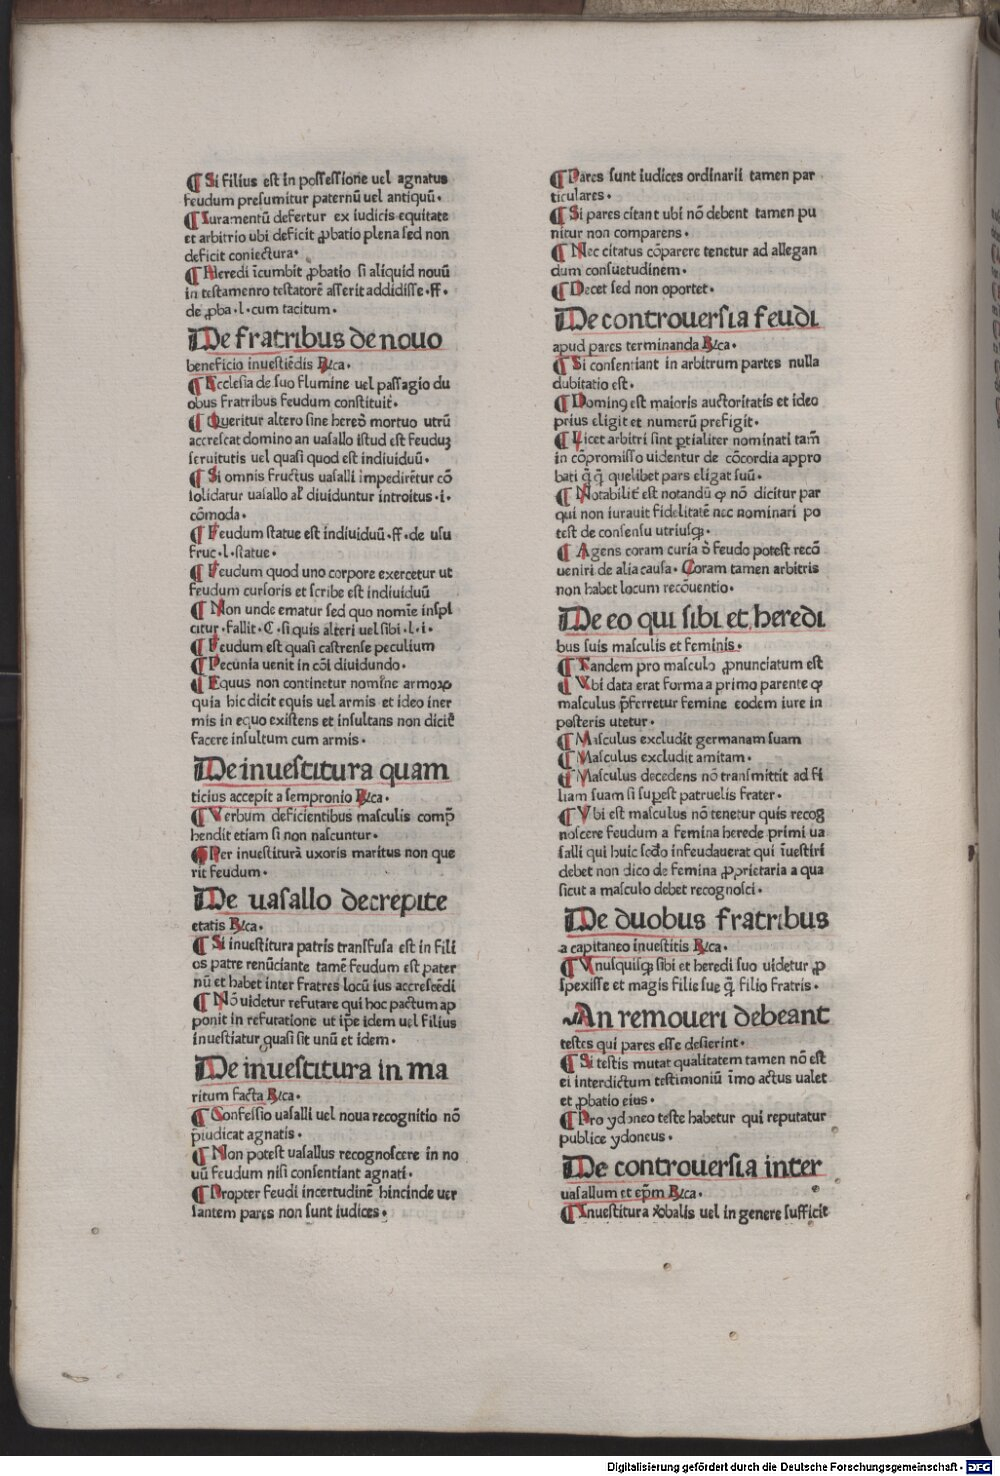 ¶ Si filius est in possessione uel agnatus
feudum presumitur paternū uel antiquū.
¶ Iuramentū defertur ex iudicis equitate
et arbitrio ubi deficit ꝓbatio plena sed non
deficit coniectura.
¶ Heredi īcumbit ꝓbatio si aliquid nouū
in testamenro testatorē asserit addidisse .ff.
de ꝓba .l. cum tacitum.
De fratribus de nouo
beneficio inuestiēdis Rca.
¶ Ecclesia de suo flumine uel passagio du
obus fratribus feudum constituit.
¶ Queritur altero sine hered' mortuo utrū
accrescat domino an uasallo istud est feuduꝫ
seruitutis uel quasi quod est indiuiduū.
¶ Si omnis fructus uasalli impedirētur cō
solidatur uasallo al' diuiduntur introitus .i.
cōmoda.
¶ Feudum statue est indiuiduū .ff. de usu
fruc .l. statue.
¶ Feudum quod uno corpore exercetur ut
feudum cursoris et scribe est indiuiduū
¶ Non unde ematur sed quo nomīe inspi
citur .fallit .C. si quis alteri uel sibi .l.i.
¶ Feudum est quasi castrense peculium
¶ Pecunia uenit in cōi diuidundo.
¶ Equus non continetur nomine armoꝝ
quia hic dicit equis uel armis et ideo iner
mis in equo existens et insultans non dicit'
facere insultum cum armis.
De inuestitura quam
ticius accepit a sempronio Rca.
¶ Verbum deficientibus masculis comp̄
hendit etiam si non nascuntur.
¶ Per inuestiturā uxoris maritus non que
rit feudum.
De uasallo decrepite
etatis Rca.
¶ Si inuestitura patris transfusa est in fili
os patre renūciante tamē feudum est pater
nū et habet inter fratres locū ius accrescēdi
¶ Nō uidetur refutare qui hoc pactum ap
ponit in refutatione ut ip̄e idem uel filius
inuestiatur quasi sit unū et idem.
De inuestitura in ma
ritum facta Rca.
¶ Confessio uasalli uel noua recognitio nō
p̄iudicat agnatis.
¶ Non potest uasallus recognoscere in no
uū feudum nisi consentiant agnati.
¶ Propter feudi incertudinē hincinde uer
santem pares non sunt iudices.
¶ Pares sunt iudices ordinarii tamen par
ticulares.
¶ Si pares citant ubi nō debent tamen pu
nitur non comparens.
¶ Nec citatus cōparere tenetur ad allegan
dum consuetudinem.
¶ Decet sed non oportet.
De controuersia feudi
apud pares terminanda Rca.
¶ Si consentiant in arbitrum partes nulla
dubitatio est.
¶ Dominꝰ est maioris auctoritatis et ideo
prius eligit et numerū prefigit.
¶ Licet arbitri sint ꝑtialiter nominati tam̄
in cōpromisso uidentur de cōcordia appro
bati q̄ q̄ quelibet pars eligat suū.
¶ Notabilit' est notandū ꝙ nō dicitur par
qui non iurauit fidelitatē nec nominari po
test de consensu utriusqꝫ.
¶ Agens coram curia d' feudo potest recō
ueniri de alia causa. Coram tamen arbitris
non habet locum recōuentio.
De eo qui sibi et heredi
bus suis masculis et feminis.
¶ Tandem pro masculo ꝓnunciatum est
¶ Vbi data erat forma a primo parente ꝙ
masculus p̄ferretur femine eodem iure in
posteris utetur.
¶ Masculus excludit germanam suam
¶ Masculus excludit amitam.
¶ Masculus decedens nō transmittit ad fi
liam suam si suꝑest patruelis frater.
¶ Vbi est masculus nō tenetur quis recog
noscere feudum a femina herede primi ua
salli qui huic sc'do infeudauerat qui īuestiri
debet non dico de femina ꝓprietaria a qua
sicut a masculo debet recognosci.
De duobus fratribus
a capitaneo inuestitis Rca.
¶ Vnusquisqꝫ sibi et heredi suo uidetur ꝓ
spexisse et magis filie sue q̄ filio fratris.
An remoueri debeant
testes qui pares esse desierint.
¶ Si testis mutat qualitatem tamen nō est
ei interdictum testimoniū īmo actus ualet
et ꝓbatio eius.
¶ Pro ydoneo teste habetur qui reputatur
publice ydoneus.
De controuersia inter
uasallum et ep̄m Rca.
¶ Inuestitura ūobalis uel in genere sufficit
Digitalisierung gefördert durch die Deutsche Forschungsgemeinschaft - DFG